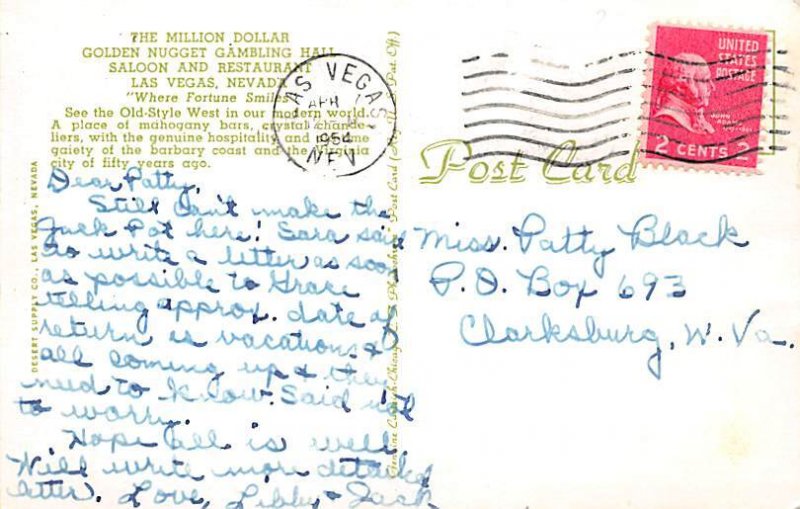 THE MILLION DOLLAR
GOLDEN NUGGET GAMBLING HALL
SALOON AND RESTAURANT
LAS VEGAS, NEVADA
"Where Fortune Smiles"
See the Old-Style West in our modern world.
A place of mahogany bars, crystal chande-
liers, with the genuine hospitality and
gaiety of the barbary coast and the Virginia
city of fifty years ago.
LAS VEGAS,
APR
1954
NEV
UNITED
STATES
POSTAGE
JOHN ADAMS
2 CENTS 2
Post Card
Dear Patty,
Still can't make the
Jack Pot here! Sara said
to write a letter as soon
as possible to Grace
telling approx. date of
return as vacations
all coming up & they
need to know. Said not
to worry.
Hope all is well.
Will write more detailed
letter. Love, Libby & Jack
Miss. Patty Black
P.O. Box 693
Clarksburg, W. Va.
DESERT SUPPLY CO., LAS VEGAS, NEVADA
Genuine Curteich-Chicago Post Card